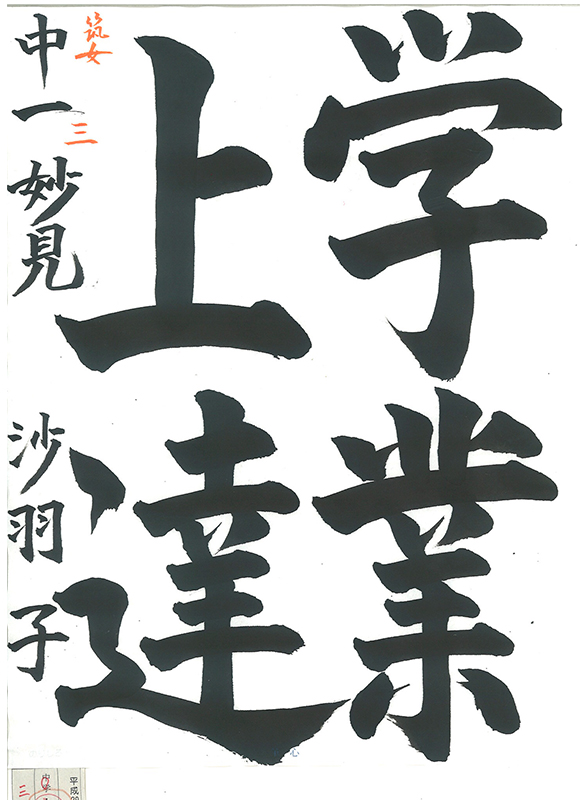 学業
上達
筑女
三
中一 妙見 沙羽子
心
平成
三